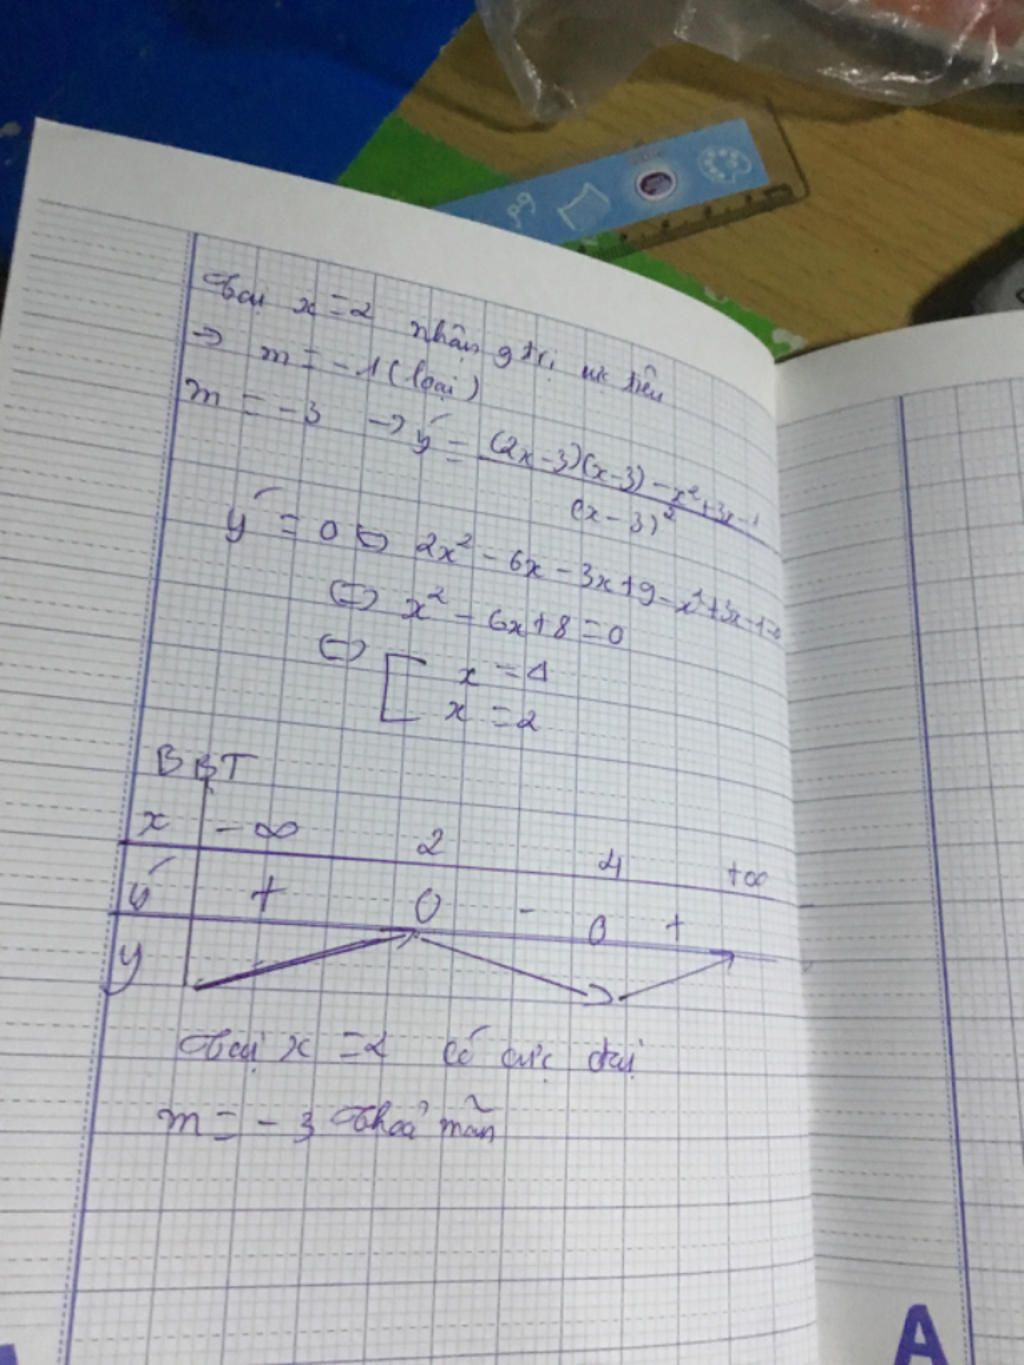 Tại x = 2 nhận giá trị cực tiểu
→ m = -1 (loại)
m = -3 → y' = ((2x-3)(x-3) - x² + 3x - 1) / (x-3)²
y' = 0 ⇔ 2x² - 6x - 3x + 9 - x² + 3x - 1 = 0
⇔ x² - 6x + 8 = 0
⇔ [ x = 4
x = 2
BBT
x -∞ 2 4 +∞
y' + 0 - 0 +
y
Tại x = 2 có cực đại
m = -3 thoả mãn
A